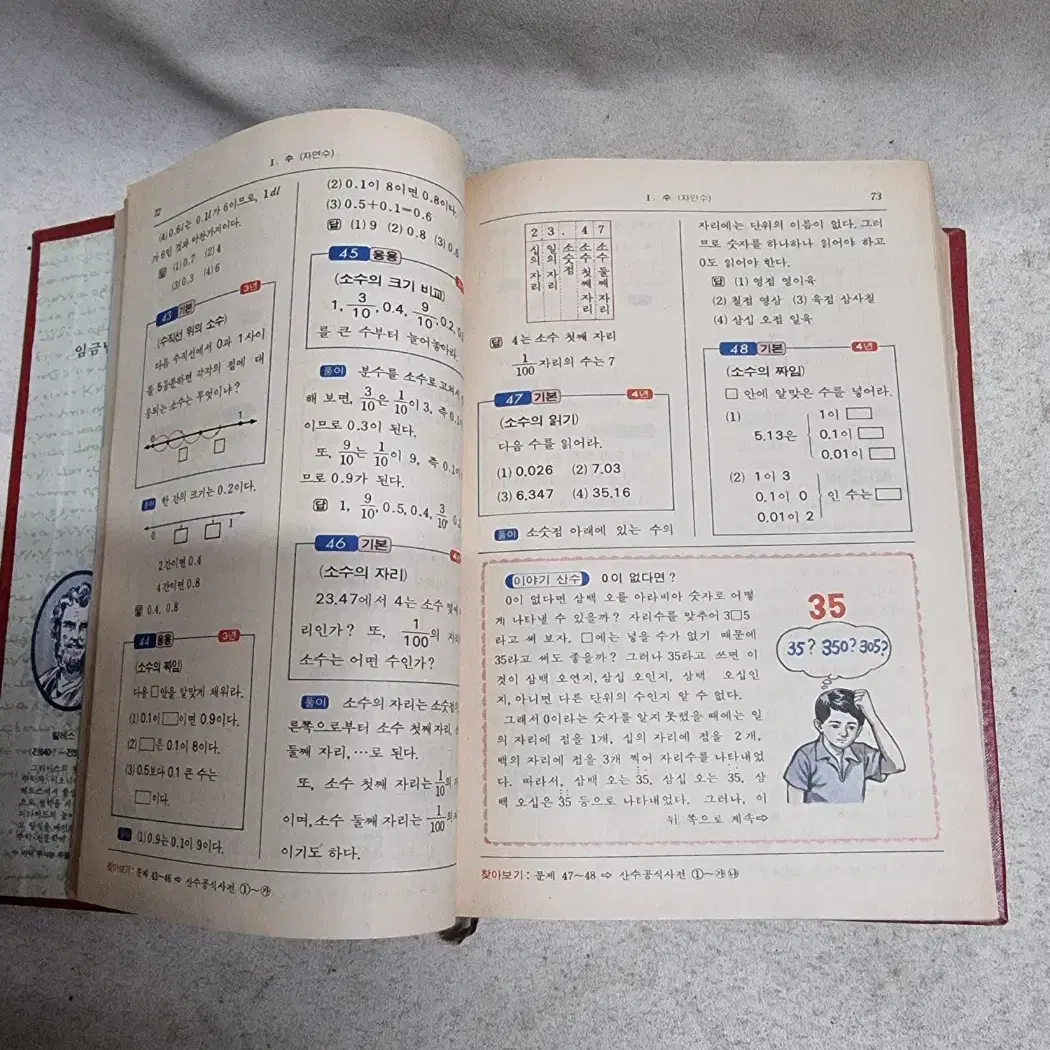 임금님
72
I. 수 (자연수)
(4) 0.6l는 0.1l가 6이므로, 1dl
가 6인 것과 마찬가지이다.
답 (1) 0.7 (2) 4
(3) 0.3 (4) 6
43 기본 3년
(수직선 위의 소수)
다음 수직선에서 0과 1 사이
를 5등분하면 각각의 점에 대
응되는 소수는 무엇이냐?
0 1
풀이 한 간의 크기는 0.2이다.
0 1
2간이면 0.4
4간이면 0.8
답 0.4, 0.8
44 응용 3년
(소수의 짜임)
다음 □안을 알맞게 채워라.
(1) 0.1이 □이면 0.9이다.
(2) □은 0.1이 8이다.
(3) 0.5보다 0.1 큰 수는
□이다.
풀이 (1) 0.9는 0.1이 9이다.
(2) 0.1이 8이면 0.8이다.
(3) 0.5+0.1=0.6
답 (1) 9 (2) 0.8 (3) 0.6
45 응용
(소수의 크기 비교)
1, 3/10, 0.4, 9/10, 0.2, 0.
를 큰 수부터 늘어놓아라.
풀이 분수를 소수로 고쳐서
해 보면, 3/10은 1/10이 3, 즉 0.1
이므로 0.3이 된다.
또, 9/10는 1/10이 9, 즉 0.1이
므로 0.9가 된다.
답 1, 9/10, 0.5, 0.4, 3/10, 0.
46 기본 4
(소수의 자리)
23.47에서 4는 소수 몇째
리인가? 또, 1/100의 자리
소수는 어떤 수인가?
풀이 소수의 자리는 소숫점
른쪽으로부터 소수 첫째 자리, 소
둘째 자리, …로 된다.
또, 소수 첫째 자리는 1/10의
이며, 소수 둘째 자리는 1/100의
이기도 하다.
찾아보기: 문제 43~46 ⇨ 산수공식사전 ①~㉮
I. 수 (자연수)
73
2 3 . 4 7
십의 자리
일의 자리
소숫점
소수 첫째 자리
소수 둘째 자리
답 4는 소수 첫째 자리
1/100 자리의 수는 7
47 기본 4년
(소수의 읽기)
다음 수를 읽어라.
(1) 0.026 (2) 7.03
(3) 6.347 (4) 35.16
풀이 소숫점 아래에 있는 수의
자리에는 단위의 이름이 없다. 그러
므로 숫자를 하나하나 읽어야 하고
0도 읽어야 한다.
답 (1) 영점 영이육
(2) 칠점 영삼 (3) 육점 삼사칠
(4) 삼십 오점 일육
48 기본 4년
(소수의 짜임)
□ 안에 알맞은 수를 넣어라.
(1)
1이 □
5.13은 0.1이 □
0.01이 □
(2) 1이 3
0.1이 0 인 수는 □
0.01이 2
이야기 산수 0이 없다면?
0이 없다면 삼백 오를 아라비아 숫자로 어떻
게 나타낼 수 있을까? 자리수를 맞추어 3□5
라고 써 보자. □에는 넣을 수가 없기 때문에
35라고 써도 좋을까? 그러나 35라고 쓰면 이
것이 삼백 오연지, 삼십 오인지, 삼백 오십인
지, 아니면 다른 단위의 수인지 알 수 없다.
그래서 0이라는 숫자를 알지 못했을 때에는 일
의 자리에 점을 1개, 십의 자리에 점을 2개,
백의 자리에 점을 3개 찍어 자리수를 나타내었
다. 따라서, 삼백 오는 35, 삼십 오는 35, 삼
백 오십은 35 등으로 나타내었다. 그러나, 이
뒤 쪽으로 계속⇨
35
35? 350? 305?
찾아보기: 문제 47~48 ⇨ 산수공식사전 ①~㉮㉯